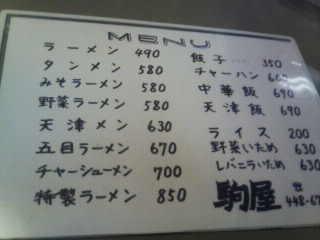 MENU
ラーメン 490
タンメン 580
みそラーメン 580
野菜ラーメン 580
天津メン 630
五目ラーメン 670
チャーシューメン 700
特製ラーメン 850
餃子 350
チャーハン
中華飯 690
天津飯 690
ライス 200
野菜いため 630
レバニラいため 630
駒屋 ☎